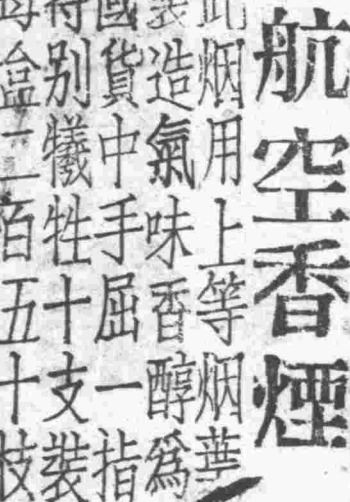 航空香煙
此烟用上等烟葉
裝造氣味香醇為
國貨中手屈一指
特别犧牲十支裝
每盒二百五十枝